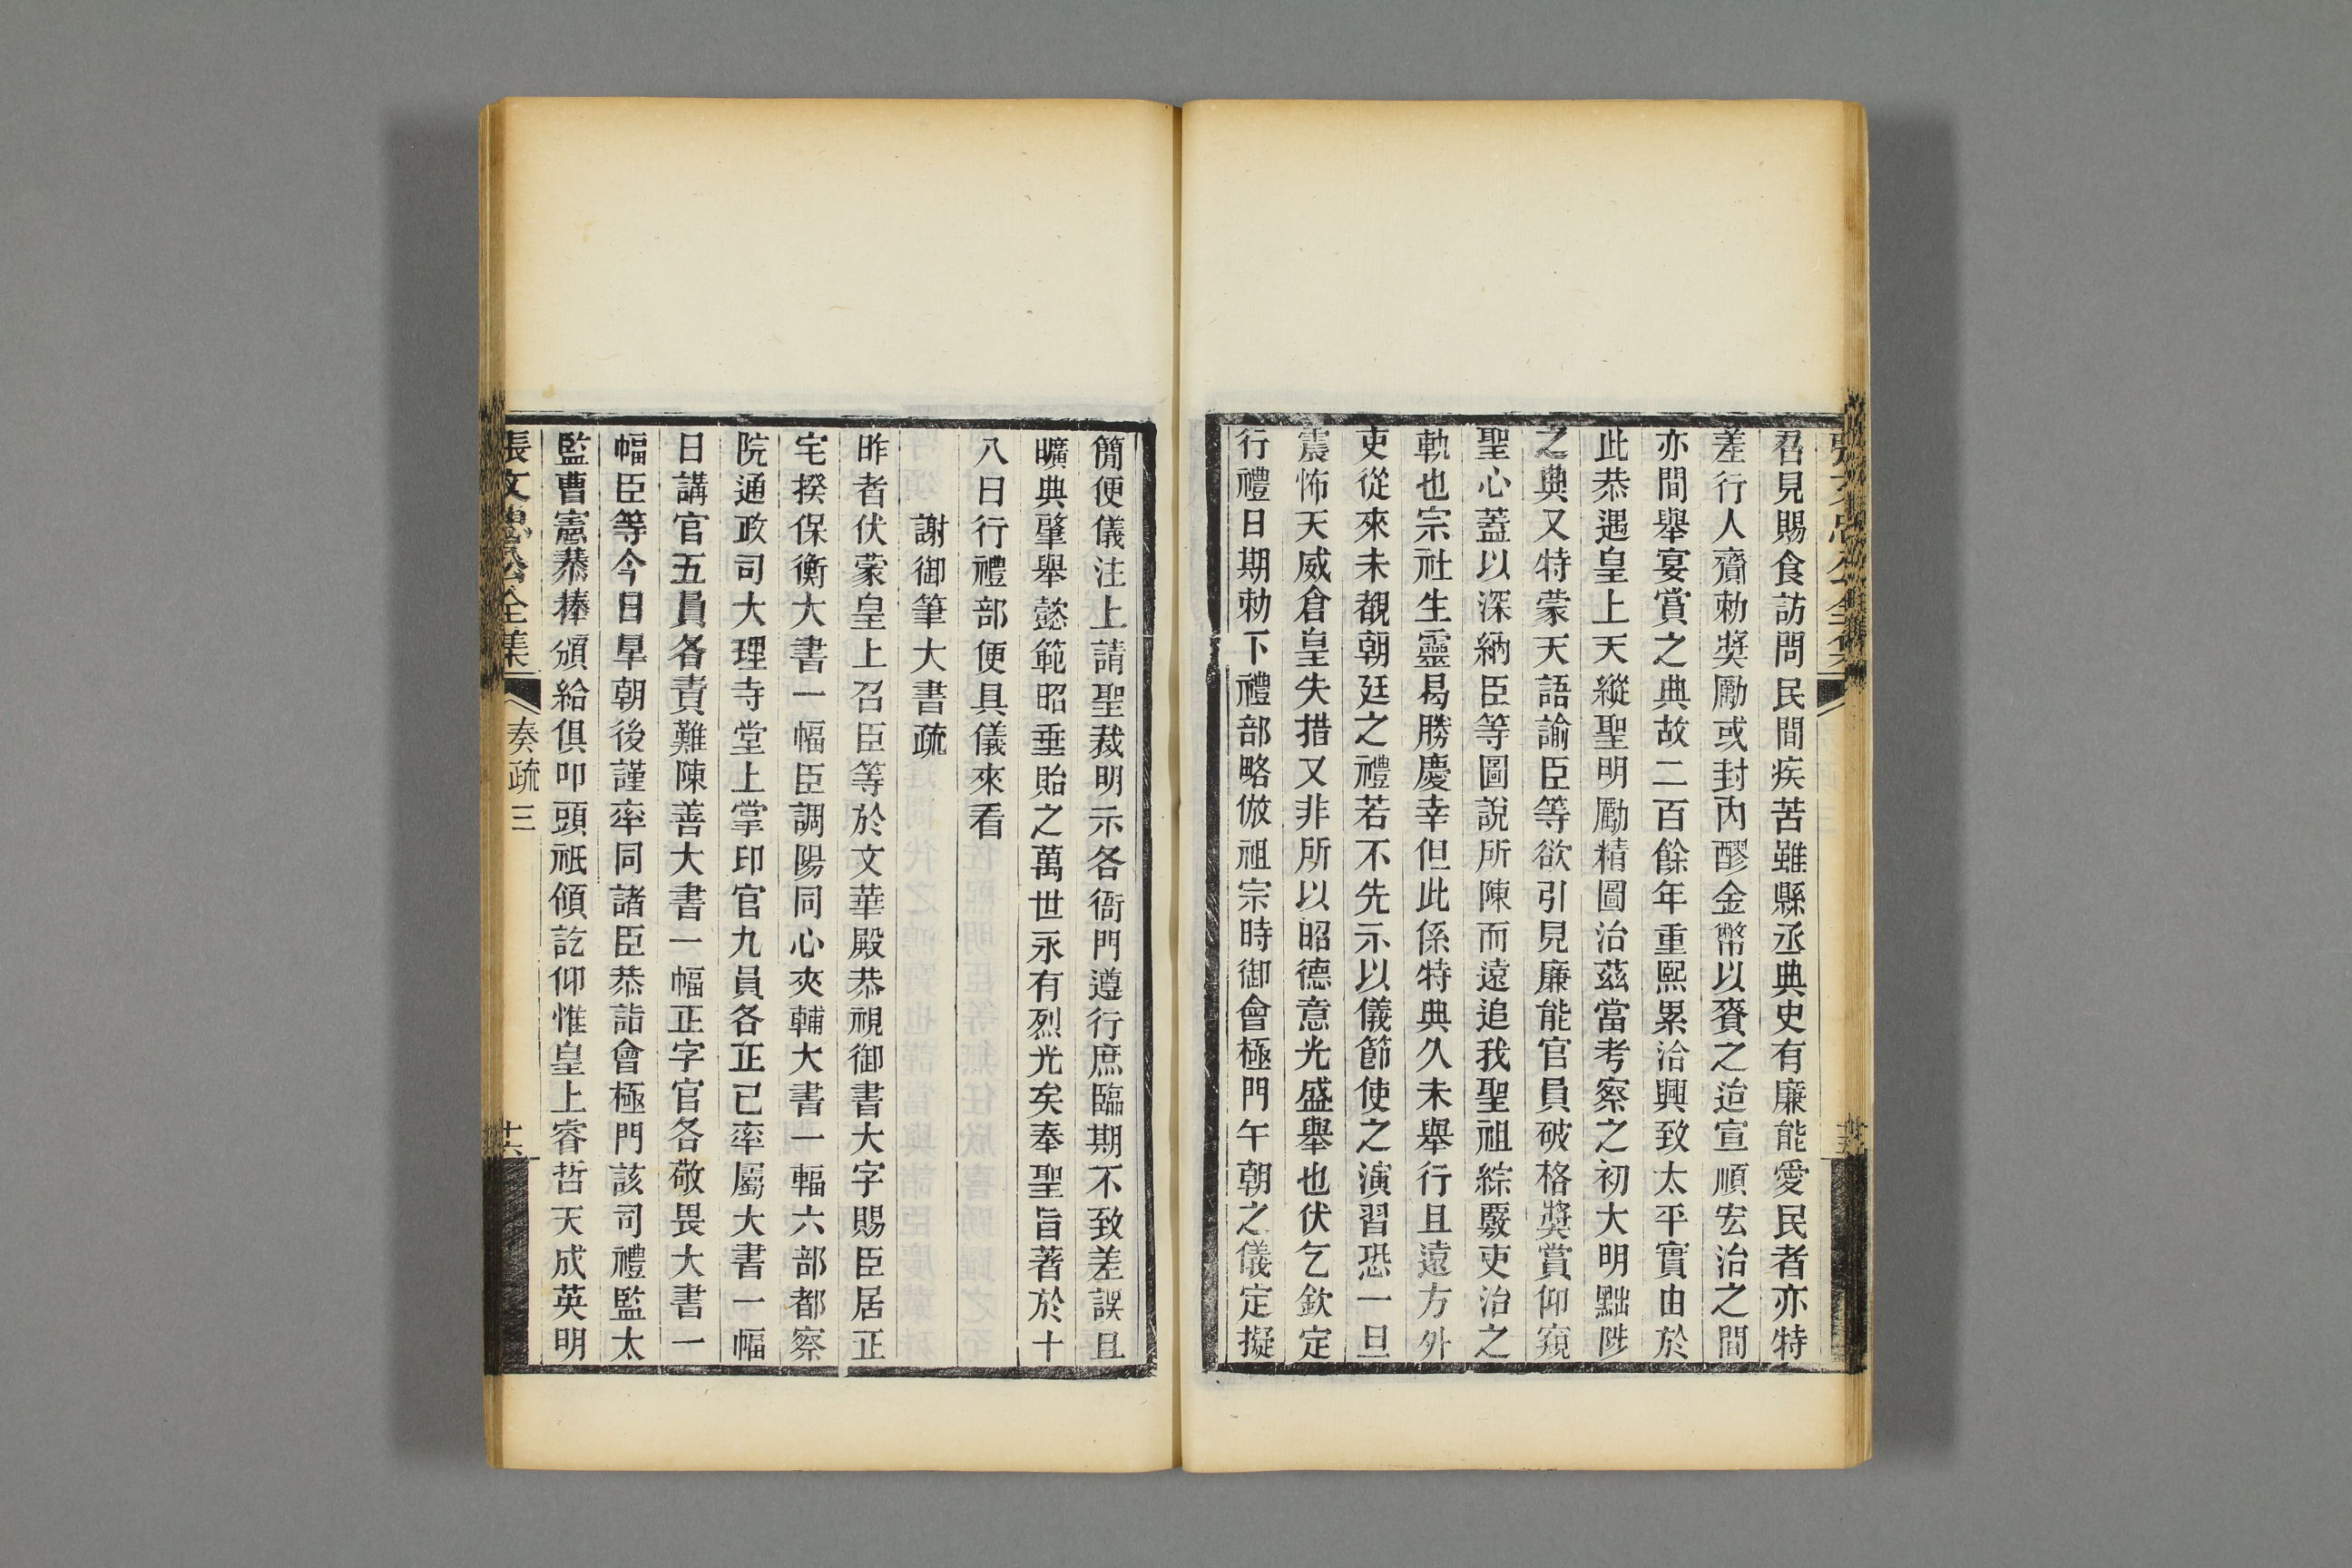 召見賜食訪問民間疾苦雖縣丞典史有廉能愛民者亦特
差行人齎勅獎勵或封內醪金幣以賚之迨宣順宏治之間
亦間舉宴賞之典故二百餘年重熙累洽興致太平實由於
此恭遇皇上天縱聖明勵精圖治茲當考察之初大明黜陟
之典又特蒙天語諭臣等欲引見廉能官員破格獎賞仰窺
聖心蓋以深納臣等圖說所陳而遠追我聖祖綜覈吏治之
軌也宗社生靈曷勝慶幸但此係特典久未舉行且遠方外
吏從來未覩朝廷之禮若不先示以儀節使之演習恐一旦
震怖天威倉皇失措又非所以昭德意光盛舉也伏乞欽定
行禮日期勅下禮部略倣祖宗時御會極門午朝之儀定擬
簡便儀注上請聖裁明示各衙門遵行庶臨期不致差誤且
曠典肇舉懿範昭垂貽之萬世永有烈光矣奉聖旨著於十
八日行禮部便具儀來看
謝御筆大書疏
昨者伏蒙皇上召臣等於文華殿恭視御書大字賜臣居正
宅揆保衡大書一幅臣調陽同心夾輔大書一輻六部都察
院通政司大理寺堂上掌印官九員各正己率屬大書一幅
日講官五員各責難陳善大書一幅正字官各敬畏大書一
幅臣等今日早朝後謹率同諸臣恭詣會極門該司禮監太
監曹憲恭捧頒給俱叩頭祗傾訖仰惟皇上睿哲天成英明
張文忠公全集
奏疏三
十六